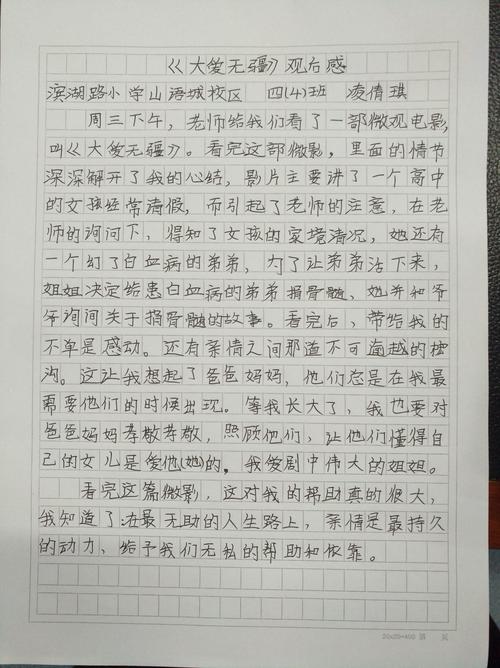 《大爱无疆》观后感
滨湖路小学山语城校区 四(4)班 凌倩琪
周三下午,老师给我们看了一部微观电影,
叫《大爱无疆》。看完这部微影,里面的情节
深深解开了我的心结,影片主要讲了一个高中
的女孩经常请假,而引起了老师的注意,在老
师的询问下,得知了女孩的家境情况,她还有
一个幻了白血病的弟弟,为了让弟弟活下来,
姐姐决定给患白血病的弟弟捐骨髓,她并和爷
爷询问关于捐骨髓的故事。看完后,带给我的
不单是感动。还有亲情之间那道不可逾越的
沟。这让我想起了爸爸妈妈,他们总是在我最
需要他们的时候出现。等我长大了,我也要对
爸爸妈妈孝敬孝敬,照顾他们,让他们懂得自
己的女儿是爱他(她)的。我爱剧中伟大的姐姐。
看完这篇微影,这对我的帮助真的很大,
我知道了:在最无助的人生路上,亲情是最持久
的动力,给予我们无私的帮助和依靠。
20×20=400 第 页